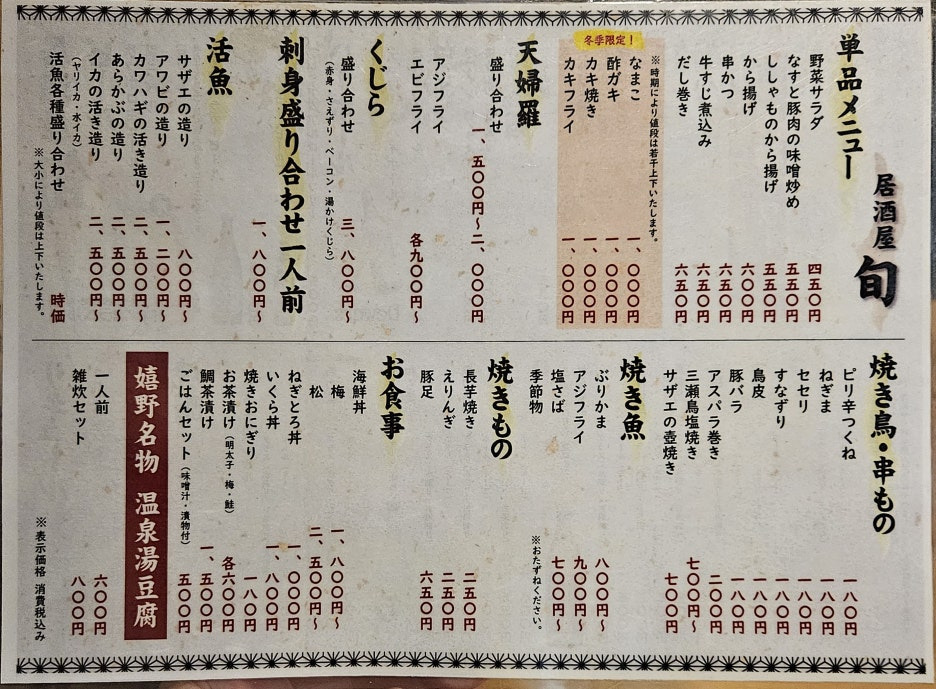 居酒屋 旬
単品メニュー
野菜サラダ 四五〇円
なすと豚肉の味噌炒め 五五〇円
ししゃものから揚げ 五五〇円
から揚げ 六〇〇円
串かつ 六五〇円
牛すじ煮込み 六五〇円
だし巻き 六五〇円
冬季限定！
※時期により値段は若干上下いたします。
なまこ 一、〇〇〇円
酢ガキ 一、〇〇〇円
カキ焼き 一、〇〇〇円
カキフライ 一、〇〇〇円
天婦羅
盛り合わせ 一、五〇〇円〜二、〇〇〇円
アジフライ
エビフライ 各九〇〇円
くじら
盛り合わせ 三、八〇〇円〜
(赤身・さえずり・ベーコン・湯かけくじら)
刺身盛り合わせ一人前
一、八〇〇円〜
活魚
サザエの造り 八〇〇円〜
アワビの造り 一、二〇〇円〜
カワハギの活き造り 二、五〇〇円〜
あらかぶの造り 二、五〇〇円〜
イカの活き造り 二、五〇〇円〜
(ヤリイカ・水イカ)
活魚各種盛り合わせ 時価
※大小により値段は上下いたします。
焼き鳥・串もの
ピリ辛つくね 一八〇円
ねぎま 一八〇円
セセリ 一八〇円
すなずり 一八〇円
鳥皮 一八〇円
豚バラ 一八〇円
アスパラ巻き 二〇〇円
三瀬鳥塩焼き 七〇〇円〜
サザエの壺焼き 七〇〇円
焼き魚
ぶりかま 八〇〇円〜
アジフライ 九〇〇円
塩さば 七〇〇円〜
季節物 ※おたずねください。
焼きもの
長芋焼き 二五〇円
えりんぎ 二五〇円
豚足 六五〇円
お食事
海鮮丼
梅 一、八〇〇円〜
松 二、五〇〇円〜
ねぎとろ丼 一、〇〇〇円
いくら丼 一、八〇〇円
焼きおにぎり 一八〇円
お茶漬け(明太子・梅・鮭) 各六〇〇円
鯛茶漬け 一、五〇〇円
ごはんセット(味噌汁・漬物付) 五〇〇円
嬉野名物 温泉湯豆腐
一人前 六〇〇円
雑炊セット 八〇〇円
※表示価格 消費税込み